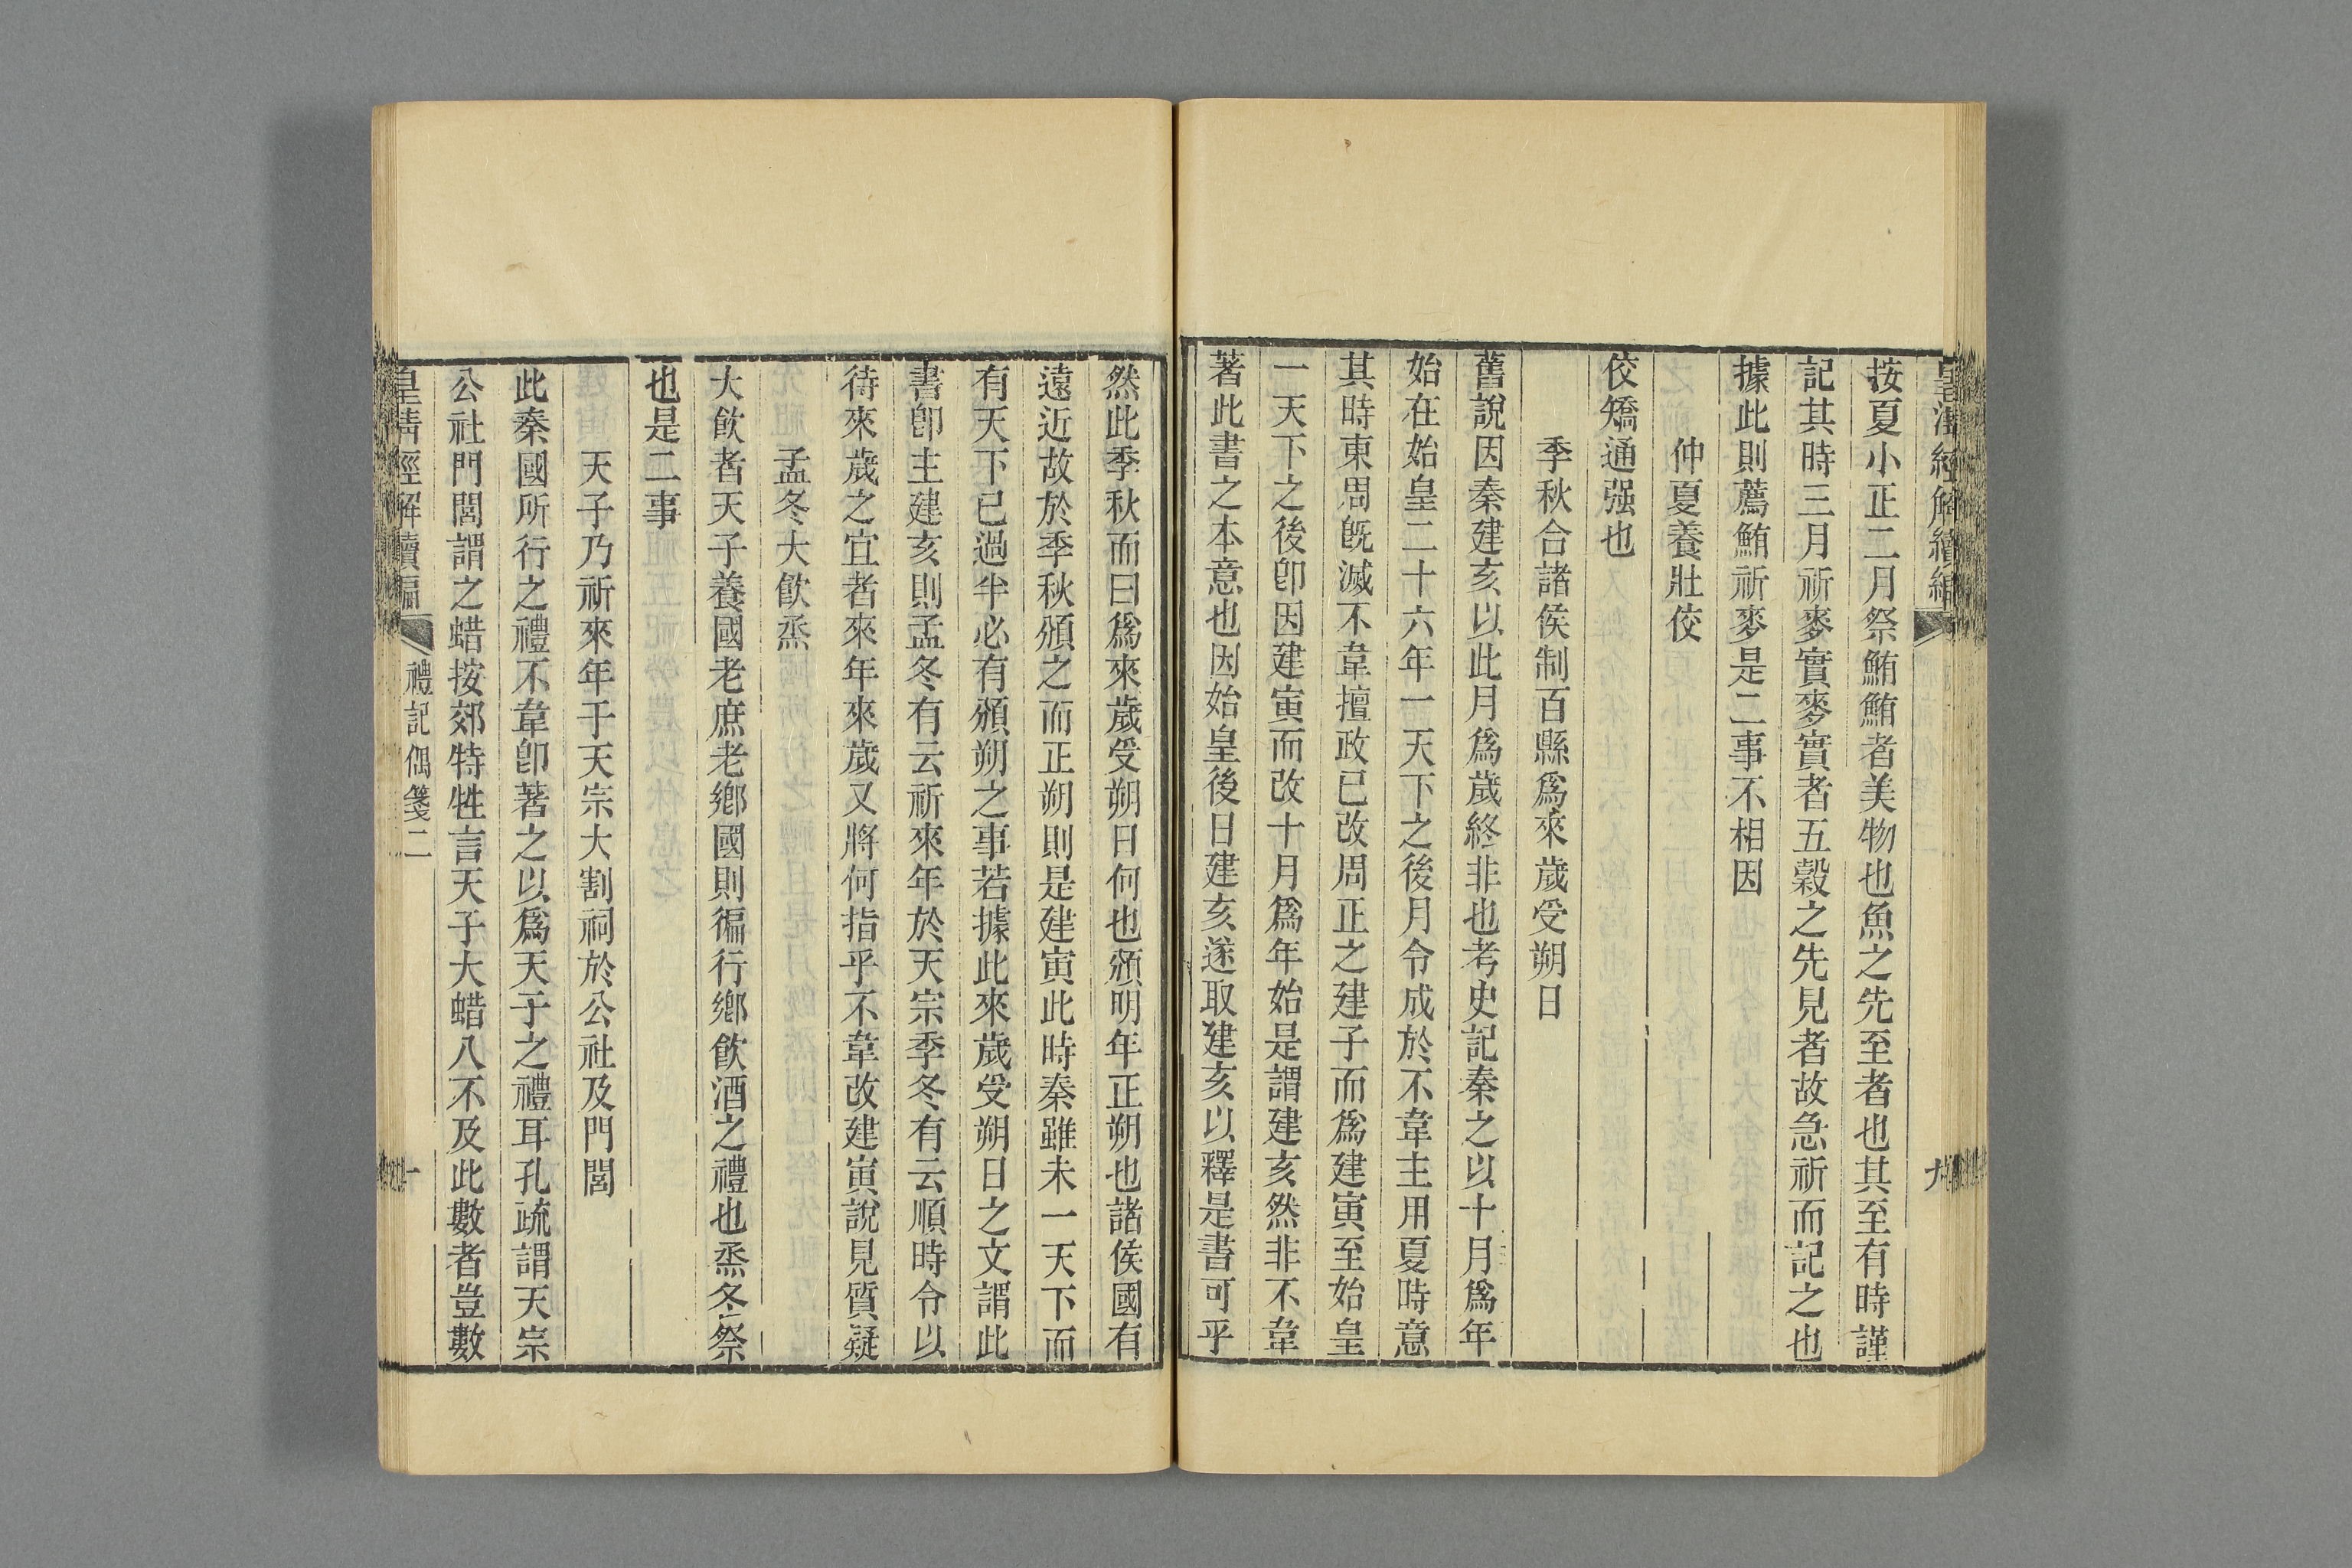 皇清經解續編
九
按夏小正二月祭鮪鮪者美物也魚之先至者也其至有時謹
記其時三月祈麥實麥實者五穀之先見者故急祈而記之也
據此則薦鮪祈麥是二事不相因
仲夏養壯佼
佼矯通强也
季秋合諸侯制百縣爲來歲受朔日
舊說因秦建亥以此月爲歲終非也考史記秦之以十月爲年
始在始皇二十六年一天下之後月令成於不韋主用夏時意
其時東周旣滅不韋擅政已改周正之建子而爲建寅至始皇
一天下之後卽因建寅而改十月爲年始是謂建亥然非不韋
著此書之本意也因始皇後日建亥遂取建亥以釋是書可乎
然此季秋而曰爲來歲受朔日何也頒明年正朔也諸侯國有
遠近故於季秋頒之而正朔則是建寅此時秦雖未一天下而
有天下已過半必有頒朔之事若據此來歲受朔日之文謂此
書卽主建亥則孟冬有云祈來年於天宗季冬有云順時令以
待來歲之宜者來年來歲又將何指乎不韋改建寅說見質疑
孟冬大飮烝
大飮者天子養國老庶老鄕國則徧行鄕飮酒之禮也烝冬祭
也是二事
天子乃祈來年于天宗大割祠於公社及門閭
此秦國所行之禮不韋卽著之以爲天子之禮耳孔疏謂天宗
公社門閭謂之蜡按郊特牲言天子大蜡八不及此數者豈數
皇清經解續編
禮記偶箋二
十